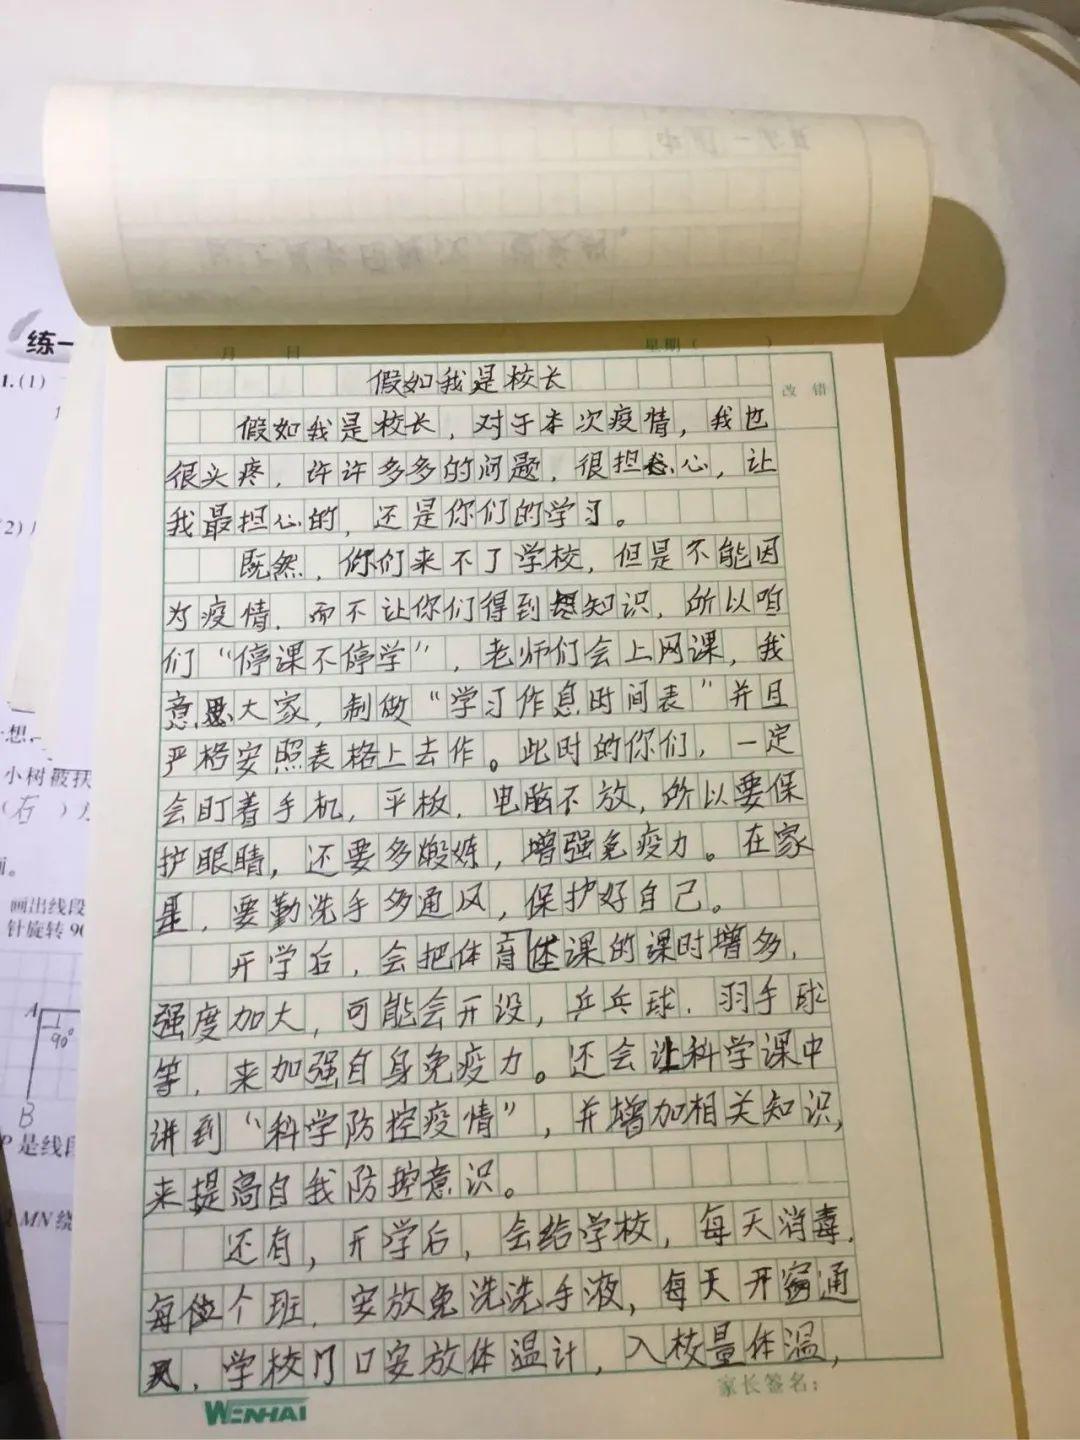 练一
1.(1)
(2)
想.
小树被扶
(右)
画出线段
针旋转90
A
90°
B
P是线段
MN绕
月 日 星期( )
改 错
假如我是校长
假如我是校长,对于本次疫情,我也
很头疼,许许多多的问题,很担心,让
我最担心的,还是你们的学习。
既然,你们来不了学校,但是不能因
为疫情,而不让你们得到知识,所以咱
们“停课不停学”,老师们会上网课,我
意思大家,制做“学习作息时间表”并且
严格安照表格上去作。此时的你们,一定
会盯着手机,平板,电脑不放,所以要保
护眼睛,还要多煅炼,增强免疫力。在家
里,要勤洗手多通风,保护好自己。
开学后,会把体育课的课时增多,
强度加大,可能会开设,乒乓球,羽手球
等,来加强自身免疫力。还会让科学课中
讲到“科学防控疫情”,并增加相关知识,
来提高自我防控意识。
还有,开学后,会给学校,每天消毒,
每个班,安放免洗洗手液,每天开窗通
风,学校门口安放体温计,入校量体温,
家长签名:
WENHAI